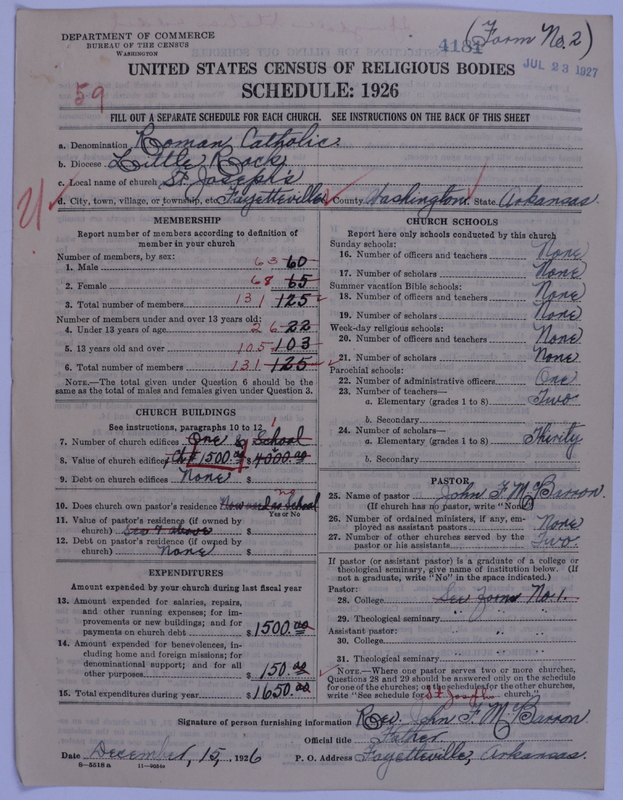 DEPARTMENT OF COMMERCE
BUREAU OF THE CENSUS
WASHINGTON
4181
(Form No. 2)
JUL 23 1927
UNITED STATES CENSUS OF RELIGIOUS BODIES
SCHEDULE: 1926
59
FILL OUT A SEPARATE SCHEDULE FOR EACH CHURCH. SEE INSTRUCTIONS ON THE BACK OF THIS SHEET
a. Denomination Roman Catholic
b. Diocese Little Rock
c. Local name of church St. Joseph's
d. City, town, village, or township, etc. Fayetteville County Washington State Arkansas.
MEMBERSHIP
Report number of members according to definition of
member in your church
Number of members, by sex:
1. Male 63 60
2. Female 68 65
3. Total number of members 131 125
Number of members under and over 13 years old:
4. Under 13 years of age 26 22
5. 13 years old and over 105 103
6. Total number of members 131 125
NOTE.—The total given under Question 6 should be the
same as the total of males and females given under Question 3.
CHURCH BUILDINGS
See instructions, paragraphs 10 to 12
7. Number of church edifices One & School 1
8. Value of church edifices Ch $1500.00 $4000.00
9. Debt on church edifices None $
10. Does church own pastor's residence Now used as School no
Yes or No
11. Value of pastor's residence (if owned by
church) See 7 above $
12. Debt on pastor's residence (if owned by
church) None $
EXPENDITURES
Amount expended by your church during last fiscal year
13. Amount expended for salaries, repairs,
and other running expenses; for im-
provements or new buildings; and for
payments on church debt $1500.00
14. Amount expended for benevolences, in-
cluding home and foreign missions; for
denominational support; and for all
other purposes $150.00
15. Total expenditures during year $1650.00
CHURCH SCHOOLS
Report here only schools conducted by this church
Sunday schools:
16. Number of officers and teachers None
17. Number of scholars None
Summer vacation Bible schools:
18. Number of officers and teachers None
19. Number of scholars None
Week-day religious schools:
20. Number of officers and teachers None
21. Number of scholars None
Parochial schools:
22. Number of administrative officers One
23. Number of teachers—
a. Elementary (grades 1 to 8) Two
b. Secondary
24. Number of scholars—
a. Elementary (grades 1 to 8) Thirity
b. Secondary
PASTOR
25. Name of pastor John F. McBarron.
(If church has no pastor, write "None")
26. Number of ordained ministers, if any, em-
ployed as assistant pastors None
27. Number of other churches served by the
pastor or his assistants Two
If pastor (or assistant pastor) is a graduate of a college or
theological seminary, give name of institution below. (If
not a graduate, write "No" in the space indicated.)
Pastor:
28. College See Form No. 1.
29. Theological seminary " " "
Assistant pastor:
30. College " " "
31. Theological seminary " " "
NOTE.—Where one pastor serves two or more churches,
Questions 28 and 29 should be answered only on the schedule
for one of the churches; on the schedules for the other churches,
write "See schedule for St Joseph church."
Signature of person furnishing information Rev. John F. McBarron
Official title Father
Date December, 15, 1926 P. O. Address Fayetteville, Arkansas.
8-5518 a 11-9034